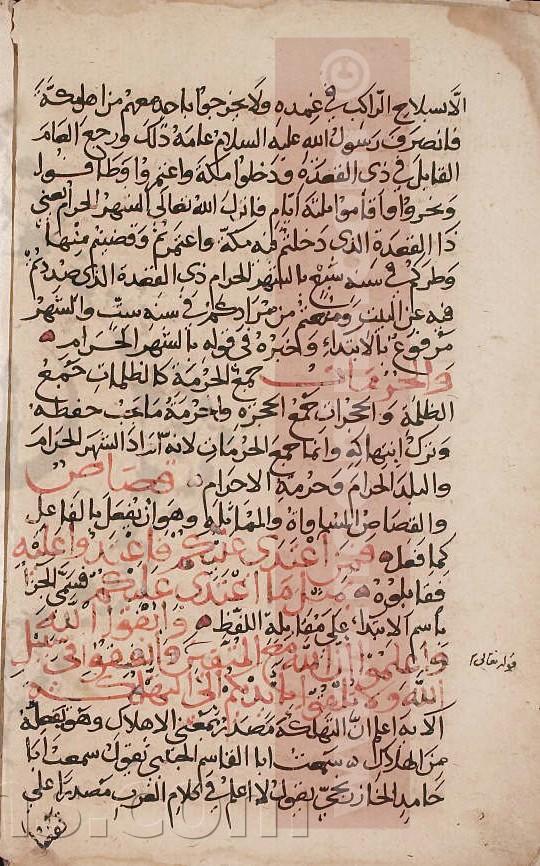 الا بسلاح الراكب في غمده ولا يخرجوا باحد معهم من اهل مكة
فانصرف رسول الله عليه السلام عامه ذلك ورجع العام
القابل في ذي القعدة ودخلوا مكة واعتمروا وطافوا
ونحروا واقاموا ثلثة ايام فانزل الله تعالى الشهر الحرام يعني
ذا القعدة الذي دخلتم فيه مكة واعتمرتم وقضيتم منها
وطركم في سنة سبع بالشهر الحرام ذي القعدة الذي صددتم
فيه عن البيت ومنعتم من مرادكم في سنة ست والشهر
مرفوع بالابتداء وخبره في قوله بالشهر الحرام
والحرمات جمع الحرمة كالظلمات جمع
الظلمة والحجرات جمع الحجرة والحرمة ما يجب حفظه
وترك انتهاكه وانما جمع الحرمات لانه اراد الشهر الحرام
والبلد الحرام وحرمة الاحرام قصاص
والقصاص المساواة والمماثلة وهو ان يفعل بالفاعل
كما فعل فمن اعتدى عليكم فاعتدوا عليه
فقابلوه بمثل ما اعتدى عليكم فسمى الجزا
باسم الابتداء على مقابلة اللفظ واتقوا الله
واعلموا ان الله مع المتقين وانفقوا في سبيل
الله ولا تلقوا بايديكم الى التهلكة
قوله تعالى
الاية اعلم ان التهلكة مصدر بمعنى الاهلاك وهو تفعلة
من الهلاك سمعت ابا القاسم الحبيبي يقول سمعت ابا
حامد الخارزنجي يقول لا اعلم في كلام العرب مصدرا على